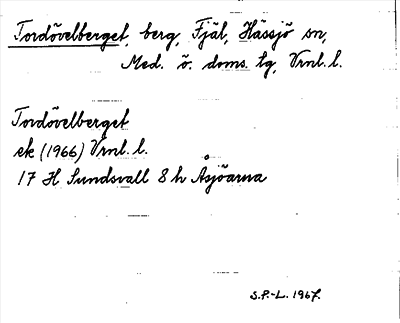 Tordövelberget, berg, Fjäl, Hässjö sn,
Med. ö. doms. tg, Vrnl. l.
Tordövelberget
ek (1966) Vrnl. l.
17 H Sundsvall 8 h Åsjöarna
S.P.-L. 1967.